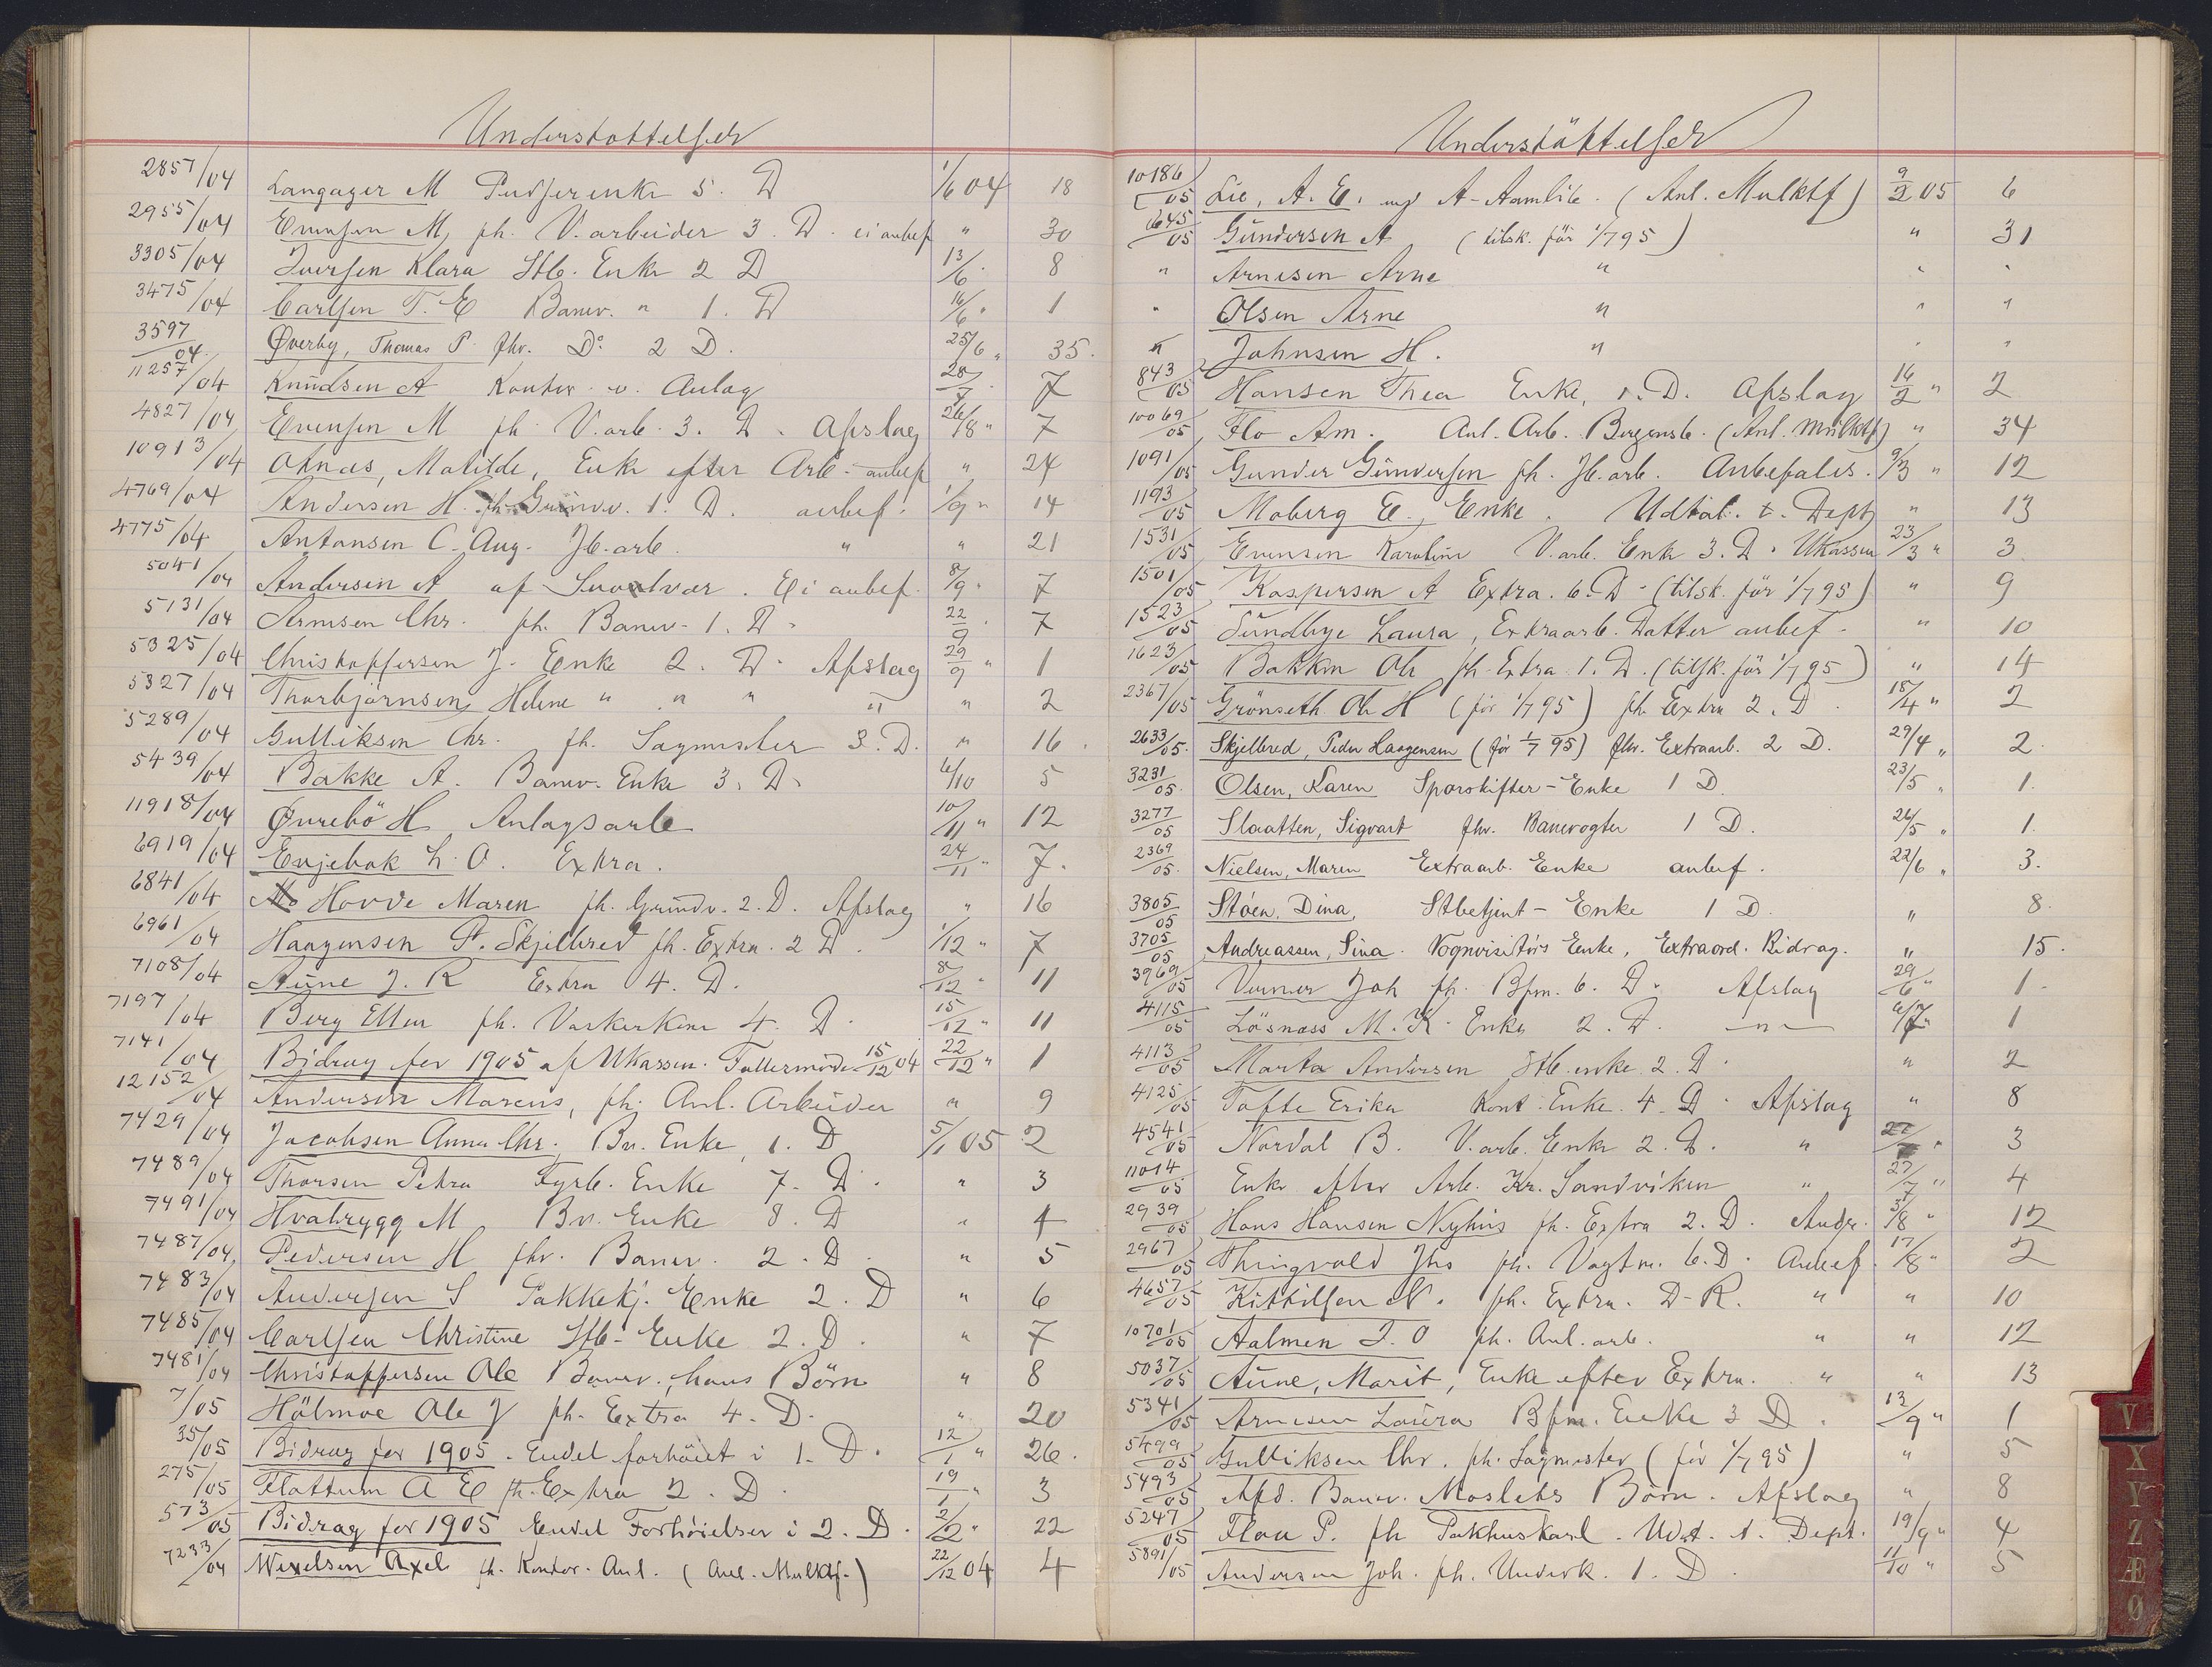 Understøttelser
2857/04 Langager M Pudserenke 5. D 1/6 04 18
2955/04 Evensen M, fh. V. arbeider 3. D. ei anbef " 30
3305/04 Iversen Klara Stb. Enke 2 D 13/6 " 8
3475/04 Carlsen T. E Banv. " 1. D 16/6 " 1
3597/04 Øverby, Thomas P. fhv. Do 2 D. 25/6 " 35.
11257/04 Knudsen A Kontor. v. Anlæg 28/7 " 7
4827/04 Evensen M fh. V. arb. 3. D. Afslag 26/8 " 7
10913/04 Matilde, Enke efter Arb. anbef " 24
4769/04 Andersen H. fh. Grindv. 1. D. anbef. 1/9 " 14
4775/04 Antonsen C. Aug. Jb. arb. " " 21
5041/04 Andersen A af Svolvær. Ei anbef. 8/9 " 7
5131/04 Arnesen Chr. fh. Banv. 1. D. 22/9 " 7
5325/04 Christoffersen J. Enke 2. D. Afslag 29/9 " 1
5327/04 Thorbjørnsen, Helene " " " " " 2
5289/04 Gulliksen Chr. fh. Sagmester 3. D. " 16.
5439/04 Bakke A. Banv. Enke 3. D. 6/10 5
11918/04 Øvrebö H. Anlagsarb 10/11 " 12
6919/04 L. O. Extra. 24/11 " 7.
6841/04 Hovde Maren fh. Grindv. 2. D. Afslag " 16
6961/04 Haagensen P. Skjelbred fh. Extra. 2 D. 1/12 " 7
7108/04 Aune J. R Extra 4. D. 8/12 " 11
7197/04 Berg Ellen fh. Vaskerkone 4. D. 15/12 " 11
7141/04 Bidrag for 1905 af Ukassen. Fællesmøde 15/12 04 22/12 " 1
12152/04 Andersen Marcus, fh. Anl. Arbeider " 9
7429/04 Jacobsen Anna Chr. Bv. Enke, 1. D 5/1 05 2
7489/04 Thorsen Petra Fyrb. Enke 7. D. " 3
7491/04 Hvatrygg M Bv. Enke 8. D " 4
7487/04 Pedersen H fhv. Banv. 2. D. " 5
7483/04 Andersen S Pakkekj. Enke 2. D " 6
7485/04 Carlsen Christine Stb. Enke 2. D. " 7
7481/04 Christoffersen Ole Banv., hans Börn " 8
7/05 Hölmoe Ole J fh. Extra 4. D. " 20
35/05 Bidrag for 1905. Endel forhöiet i 1. D. 12/1 " 26.
275/05 Flattum A E fh. Extra 2. D. 19/1 " 3
573/05 Bidrag for 1905 Endel Forhöielser i 2. D. 2/2 " 22
7233/04 Wexelsen Axel fh. Kontor. Anl. (Anl. Mulktf.) 22/12 04 4
Understöttelser
10186/05 Lie, A. E. A-Aamlib. (Anl. Mulktf) 9/2 05 6
6645/05 Gundersen A (tilsk. för 1/7 95) " 31
" Arnesen Arne " " "
" Olsen Arne " " "
" Johnsen H. " " "
843/05 Hansen Thea Enke, 1. D. Afslag 16/2 " 2
10069/05 Flo Am. Anl. Arb. Bergensb. (Anl. Mulktf) " 34
1091/05 Gunder Gundersen fh. Jb. arb. Anbefales. 9/3 " 12
1193/05 Moberg E., Enke. Udtal. t. Dept " 13
1531/05 Evensen Karoline V. arb. Enke 3. D. Ukassen 23/3 " 3
1501/05 Kaspersen A Extra. 6. D. (tilsk. för 1/7 95) " 9
1523/05 Sundbye Laura, Extraarb. Datter anbef. " 10
1623/05 Bakken Ole fh. Extra 1. D. (tilsk. för 1/7 95) " 14
2367/05 Grönseth Ole H (för 1/7 95) fh. Extra 2. D. 18/4 " 2
2633/05. Skjelbred, Peder Haagensen (för 1/7 95) fhv. Extraarb. 2 D. 29/4 " 2.
3231/05. Olsen, Karen Sporskifter-Enke 1 D. 23/5 " 1.
3277/05 Slaatten, Sigvart fhv. Banevogter 1 D. 26/5 " 1.
2369/05. Nielsen, Maren Extraarb. Enke anbef. 22/6 " 3.
3805/05 Stöen, Dina, Stbetjent-Enke 1 D. " 8.
3705/05 Andreassen, Sina. Vognvisitörs Enke, Extraord. Bidrag. " 15.
3969/05 Joh fh. Bfm. 6. D. Afslag 29/6 " 1.
4115/05 Lösnæss M. K. Enke 2. D. —"— 6/7 " 1
4113/05 Marta Andersen Stb. enke. 2. D. " 2
4125/05 Tofte Erika Kont. Enke. 4. D. Afslag " 8
4541/05 Nordal B. V. arb. Enke 2. D. " " 3
11014/05 Enke efter Arb. Kr. Sandviken " 27/7 " 4
2939/05 Hans Hansen Nyhus fh. Extra 2. D. 3/8 " 12
2967/05 Thingvold Jhs fh. Vogtm. 6. D. Anbef. 17/8 " 2
4657/05 Kittilsen N. fh. Extra. D-R. " " 10
10701/05 Aalmen T. O fh. Anl. arb. " " 12
5037/05 Aune, Marit, Enke efter Extra. " " 13
5341/05 Arnesen Laura Bfm. Enke 3 D. 13/9 " 1
5499/05 Gulliksen Chr. fh. Sagmester (för 1/7 95) " 5
5493/05 Afd. Banv. Moslets Börn. Afslag " 8
5247/05 Flau P. fh Pakhuskarl. Udt. t. Dept. 19/9 " 4
5891/05 Andersen Joh. fh. Underk. 1. D. 11/10 " 5
V
X
Y
Z
Æ
Ø